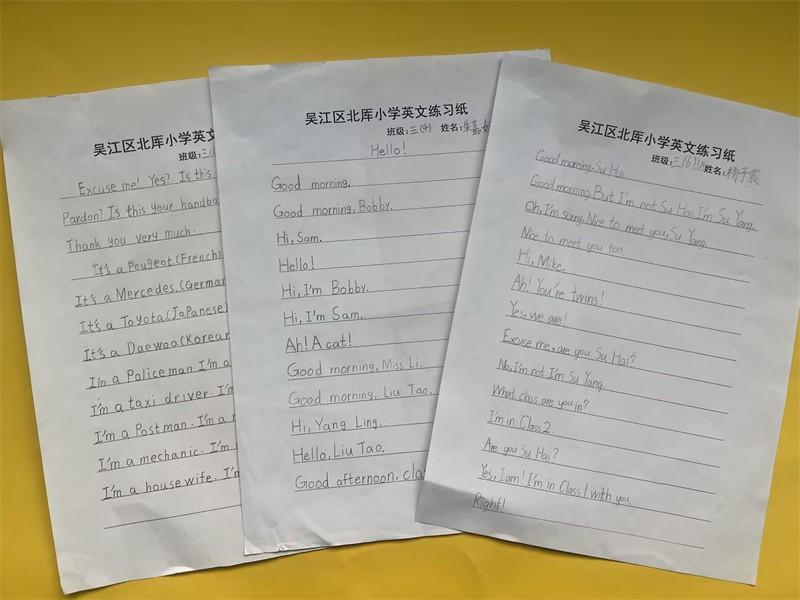 吴江区北厍小学英文
班级:三(
Excuse me! Yes? Is this
Pardon? Is this your handba
Thank you very much.
It's a Peugeot.(French)
It's a Mercedes.(German
It's a Toyota(JaPanese)
It's a Daewoo(Korean
I'm a Policeman I'm a
I'm a taxi driver. I'm
I'm a Postman. I'm a
I'm a mechanic. I'm
I'm a housewife. I'm
吴江区北厍小学英文练习纸
班级:三(4) 姓名:朱嘉
Hello!
Good morning.
Good morning, Bobby.
Hi, Sam.
Hello!
Hi, I'm Bobby.
Hi, I'm Sam.
Ah! A cat!
Good morning, Miss Li.
Good morning, Liu Tao.
Hi, Yang Ling.
Hello, Liu Tao.
Good afternoon, cla
吴江区北厍小学英文练习纸
班级:三(6)班 姓名:杨子宸
Good morning, Su Hai.
Good morning. But I'm not Su Hai. I'm Su Yang.
Oh, I'm sorry. Nice to meet you, Su Yang.
Nice to meet you too.
Hi, Mike.
Ah! You're twins!
Yes, we are!
Excuse me, are you Su Hai?
No, I'm not. I'm Su Yang.
What class are you in?
I'm in Class 2.
Are you Su Hai?
Yes, I am! I'm in Class 1 with you.
Right!